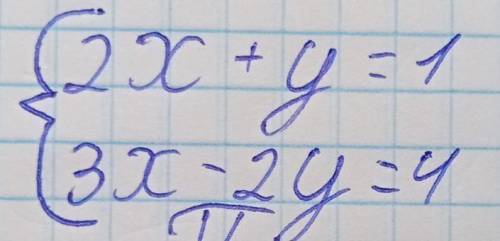 2x + y = 1
3x - 2y = 4